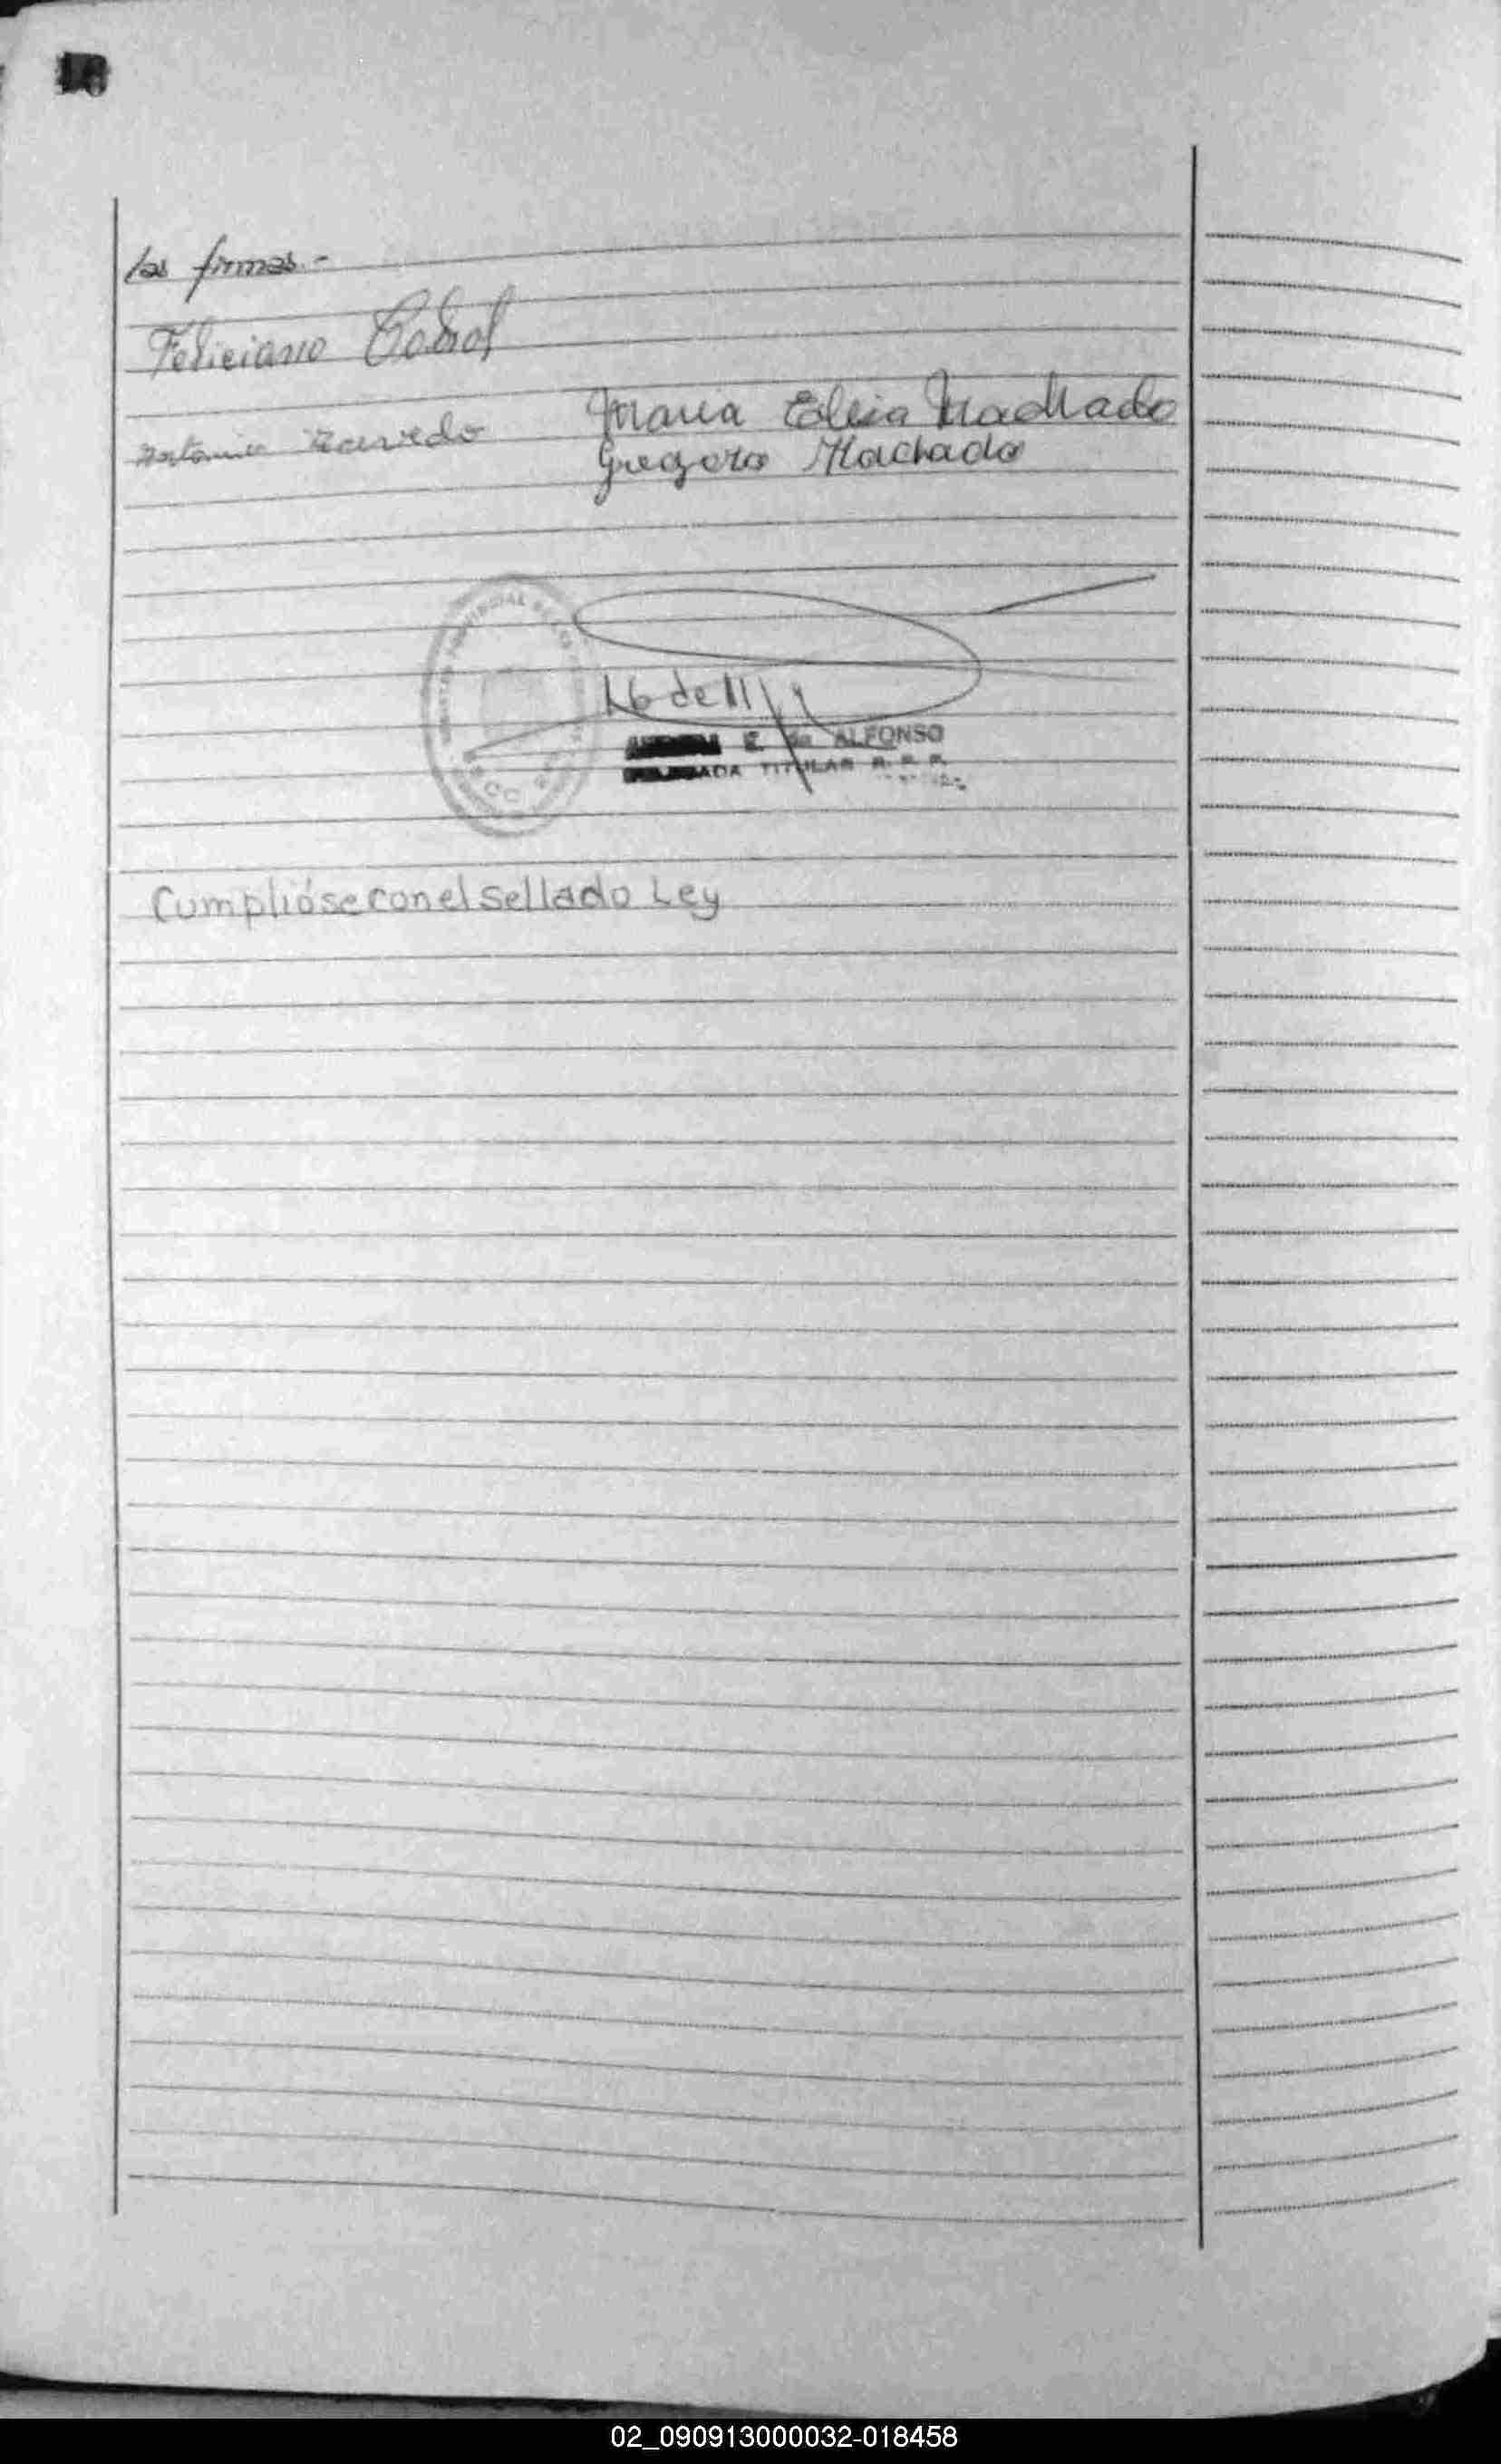 16
las firmas.-
Feliciano Cabral
Antonio Acevedo
Maria Elsia Machado
Gregorio Machado
E. de ALFONSO
TITULAR R. P. P.
Cumplióse con el sellado Ley
02_090913000032-018458